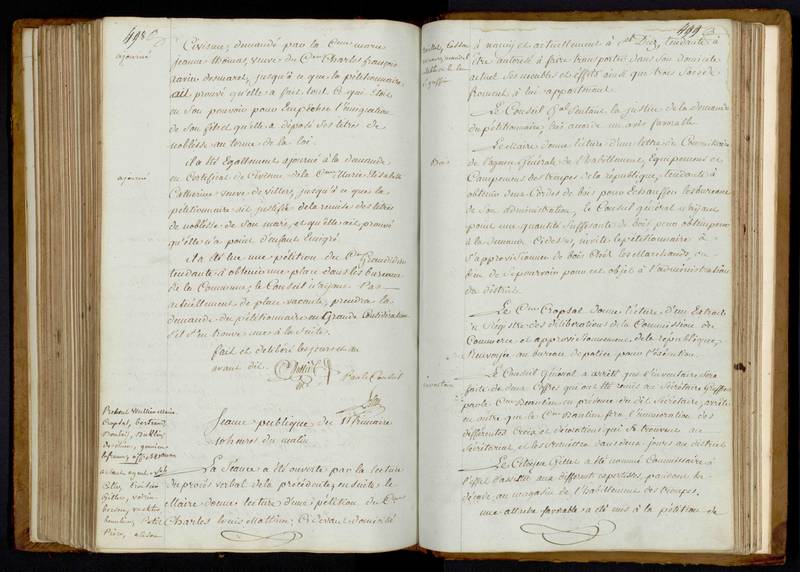 498
ajourné
Civisme, demandé par la Cne marie
jeanne thomas, veuve du Cen Charles françois
xavier desmaret, jusqu'à ce que la pétitionnaire
ait prouvé qu'elle a fait tout ce qui étoit
en son pouvoir pour Empêcher l'émigration
de son fils et qu'elle a déposé ses titres de
noblesse au terme de la loi.
Il a été Egallement ajourné à la demande
ajourné
en Certificat de Civisme de la Cne Marie Elisabeth
Catherine veuve devillers, jusqu'à ce que la
pétitionnaire ait justifié de la remise des titres
de noblesse de son mari, et qu'elle ait prouvé
qu'elle n'a point d'enfant Emigré.
Il a été lue une pétition du Cen Grandidier
tendante à obtenir une place dans les bureaux
de la Commune, le Conseil n'ayant pas
actuellement de place vacante, prendra la
demande du pétitionnaire en Grande Considération
s'il s'en trouve une à la suite.
fait et délibéré les jour et an
avant dit.
Par le Conseil
Séance publique du 11 frimaire
10 heures du matin
La Séance a été ouverte par la lecture
du procès verbal de la précédente, ensuite le
Maire donne lecture d'une pétition du Cen
Charles louis Mathieu, Cidevant domicilié
499
à nancy et actuellement à St Diez, tendante à
être autorisé à faire transporter dans son domicile
actuel ses meubles et effets ainsi que trois sacs de
froment à lui appartenant.
Le Conseil Gal sentant la justice de la demande
du pétitionnaire, lui accorde un avis favorable
Le Maire donne lecture d'une lettre du Commissaire
Bois
de l'agence Générale de l'habillement, Equipement et
Campement des troupes de la république, tendante à
obtenir deux Cordes de bois pour Echauffer les bureaux
de son administration, le Conseil général n'ayant
point une quantité suffisante de bois pour obtempérer
à la demande Cidessus, invite le pétitionnaire à
s'approvisionner de bois Chez les Marchands, ou
bien de se pourvoir pour cet objet à l'administration
du district.
Le Cen Crapsal donne lecture d'un Extrait
du Régistre des délibérations de la Commission de
Commerce et approvisionnement de la république,
Renvoyée au bureau de police pour l'exécution.
Le Conseil Général a arrêté que l'inventaire sera
inventaire
faite de deux Coffres qui ont été remis au Secrétaire Greffier
par le Cen Beaulieu en présence du dit Secrétaire, arrête
en outre que le Cen Baulieu fera l'énumération des
différentes Croix et décorations qui se trouvent au
Secrétariat, et les remettra dans deux jours au district
Le Citoyen Gillet a été nommé Commissaire à
l'effet d'assister aux différentes expertises,
au magasin de l'habillement des troupes.
une attache favorable a été mis à la pétition de